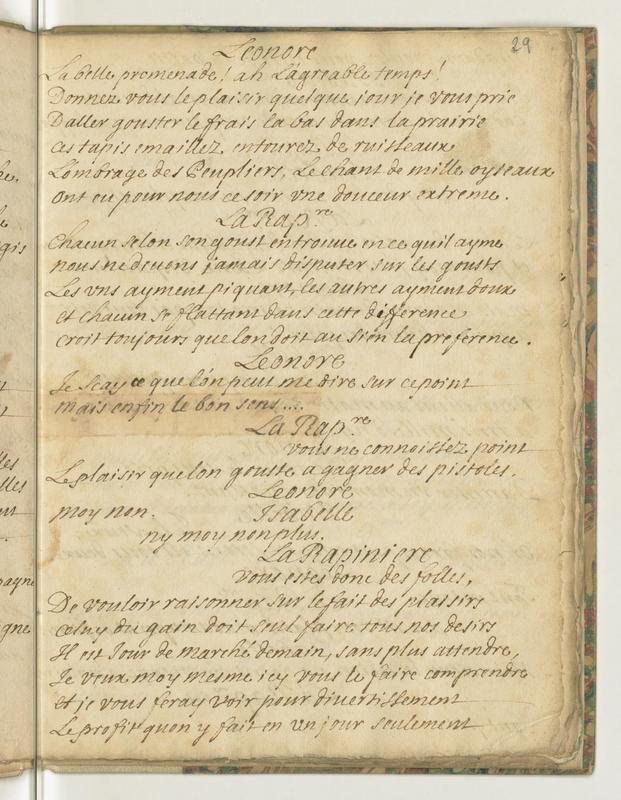 29
Leonore
La belle promenade! ah L'agreable temps!
Donnez vous le plaisir quelque jour je vous prie
Daller gouster le frais la bas dans la prairie
ces tapis emaillez entourez de ruisseaux
L'ombrage des Peupliers, Le chant de mille oyseaux
ont eu pour nous ce soir vne douceur extreme.
La Rap.re
chacun selon son goust en trouue en ce qu'il ayme
nous ne deuons jamais disputer sur les gousts
Les vns ayment piquant, les autres ayment doux
et chacun se flattant dans cette difference
croit toujours que lon doit au sien la preference.
Leonore
Je scay ce que l'on peut me dire sur ce point
mais enfin le bon sens....
La Rap.re
vous ne connoissez point
Le plaisir que lon gouste a gagner des pistoles.
Leonore
moy non.
Isabelle
ny moy non plus.
La Rapiniere
vous estes donc des folles,
De vouloir raisonner sur le fait des plaisirs
celuy du gain doit seul faire tous nos desirs
Il est Jour de marché demain, sans plus attendre,
Je veux moy mesme icy vous le faire comprendre
et je vous feray voir pour divertissement
Le profit quon y fait en vn jour seulement